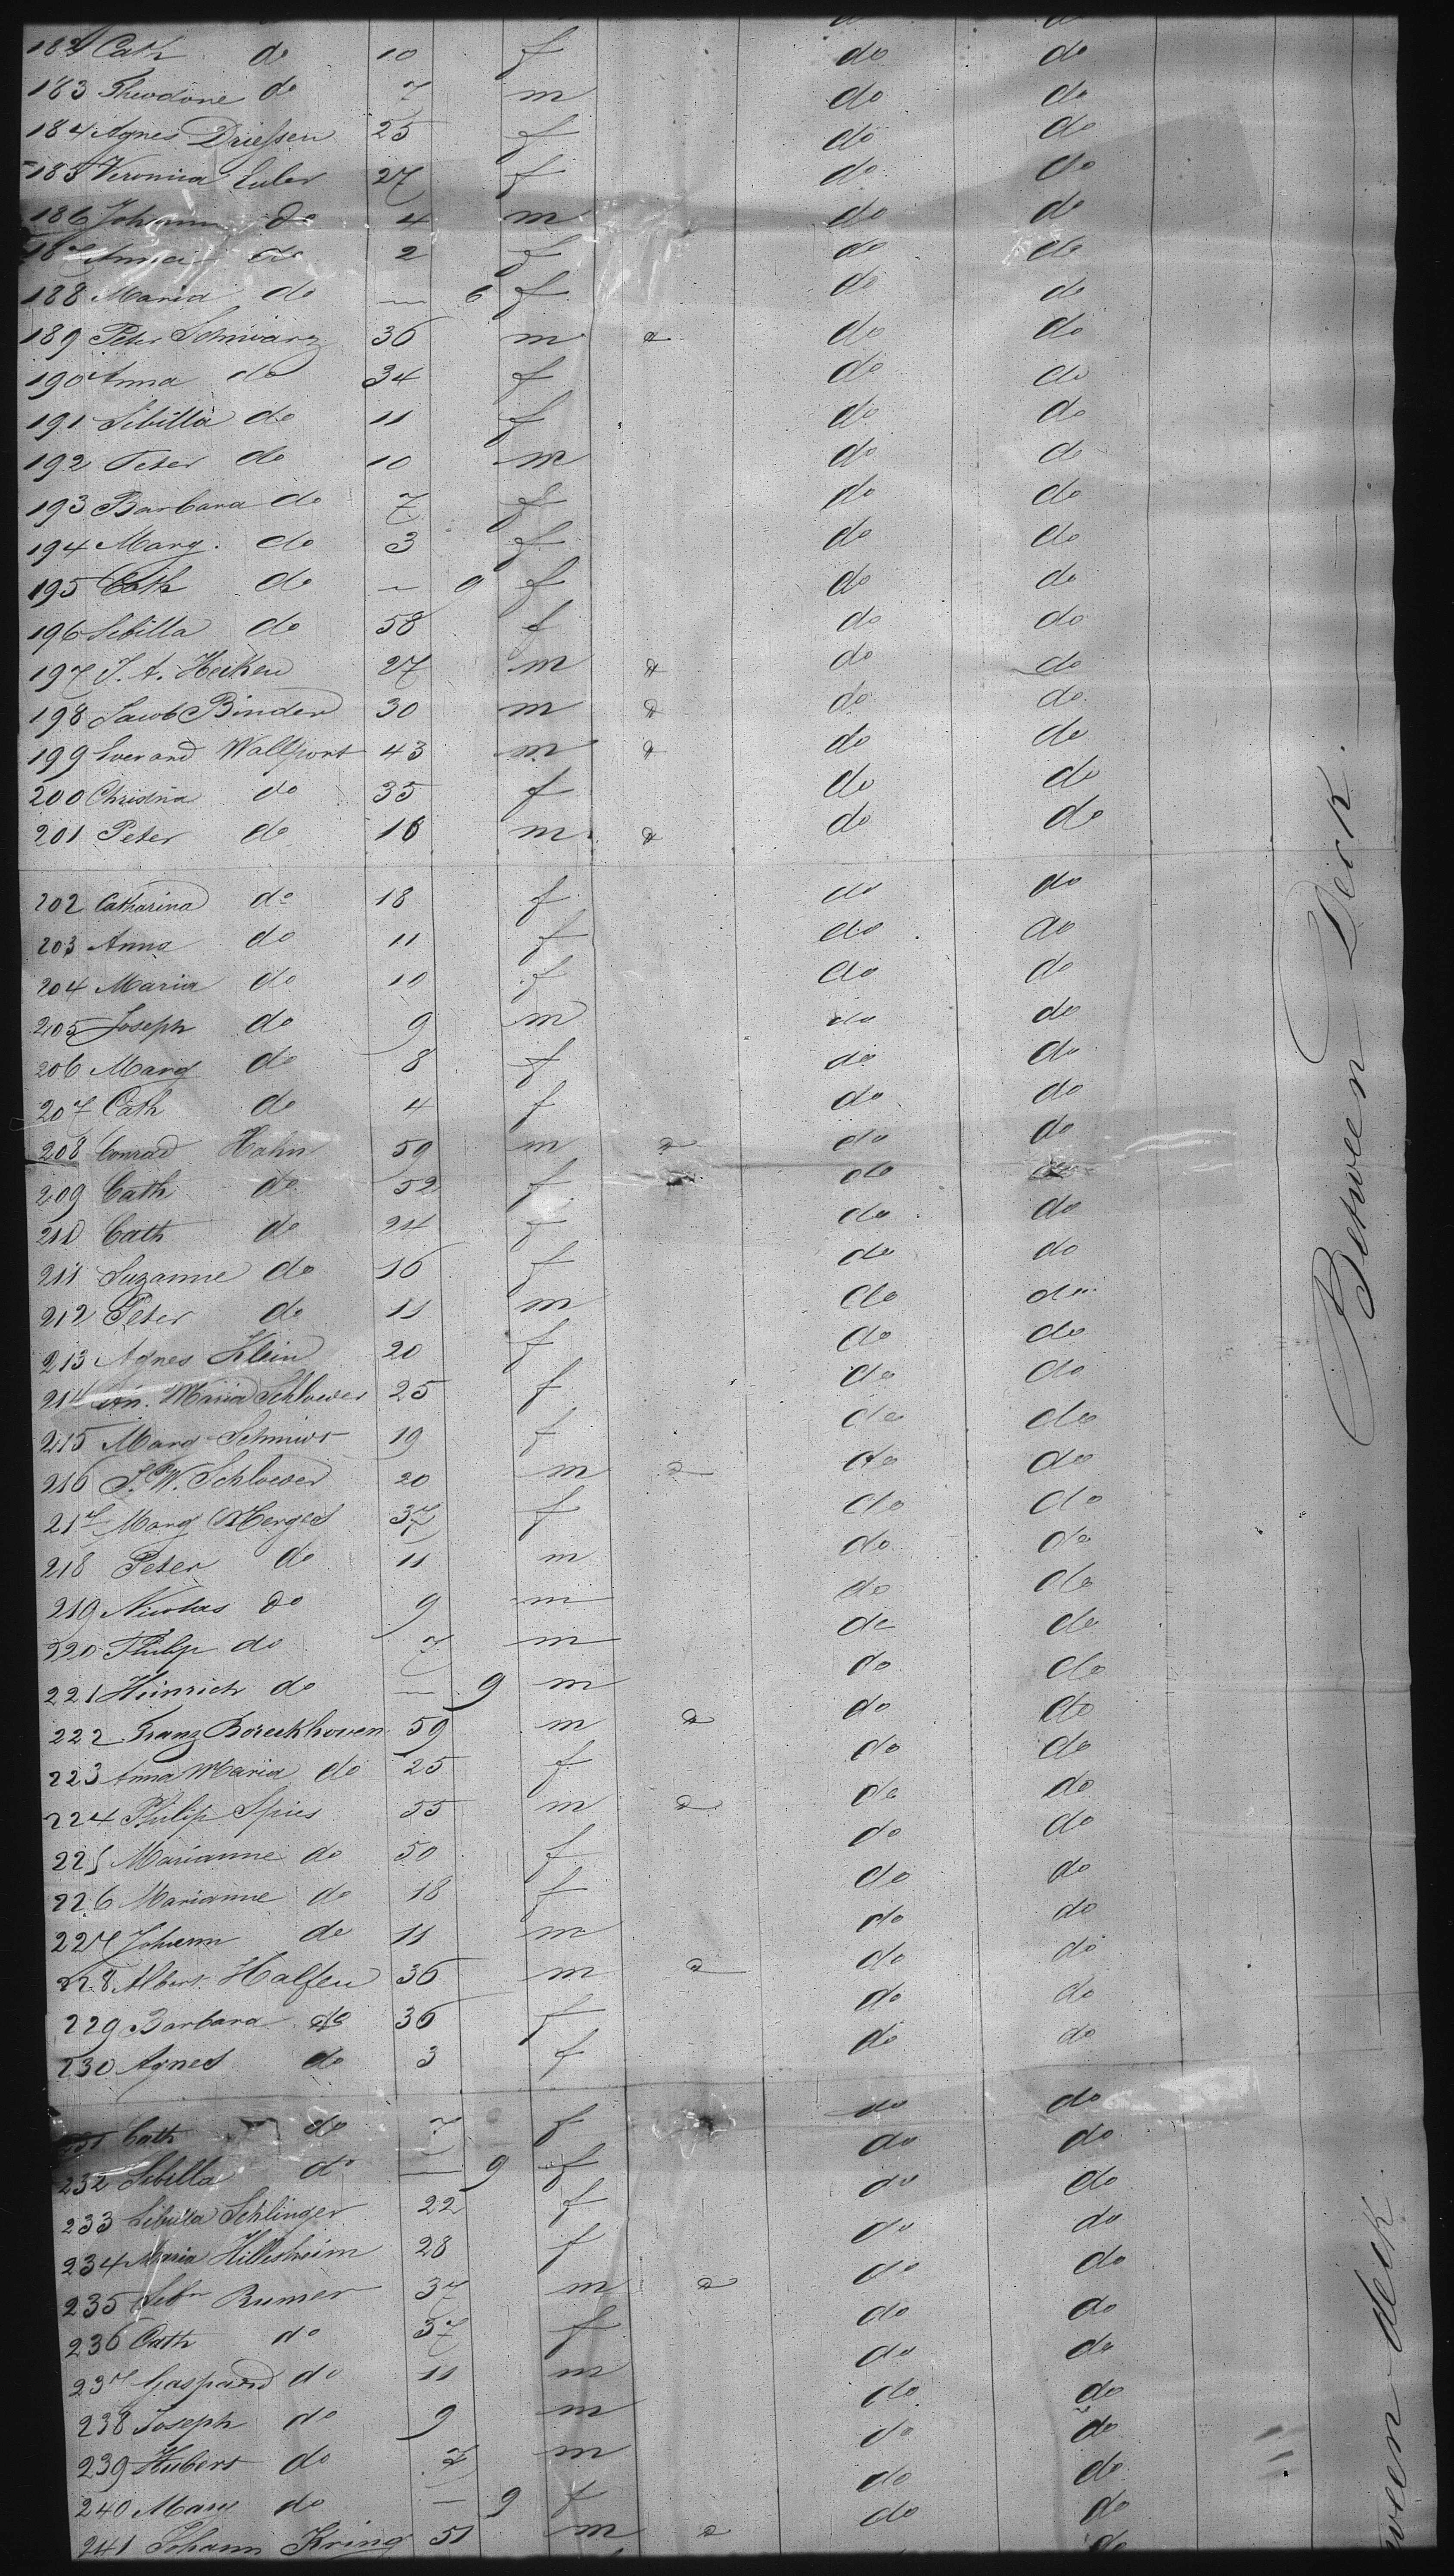 182 Cath do 10 f do do
183 Theodore do 7 m do do
184 Agnes Driessen 25 f do do
185 Veronica Euler 27 f do do
186 Johann do 4 m do do
187 Anna do 2 f do do
188 Maria do — 6 f do do
189 Peter Schwarz 36 m do do
190 Anna do 34 f do do
191 Sibilla do 11 f do do
192 Peter do 10 m do do
193 Barbara do 7 f do do
194 Marg. do 3 f do do
195 Cath do — 9 f do do
196 Sibilla do 58 f do do
197 J. A. Hecken 27 m do do
198 Jacob Binder 30 m do do
199 Everard Wallfort 43 m do do
200 Christina do 35 f do do
201 Peter do 16 m do do
202 Catharina do 18 f do do
203 Anna do 11 f do do
204 Maria do 10 f do do
205 Joseph do 9 m do do
206 Marg do 8 f do do
207 Cath do 4 f do do
208 Conrad Hahn 59 m do do
209 Cath do 52 f do do
210 Cath do 24 f do do
211 Suzanne do 16 f do do
212 Peter do 11 m do do
213 Agnes Klein 20 f do do
214 An. Maria Schloeser 25 f do do
215 Marg 19 f do do
216 J. W. Schloeser 20 m do do
217 Marg Merges 37 f do do
218 Peter do 11 m do do
219 Nicolas do 9 m do do
220 Philip do 7 m do do
221 Heinrich do — 9 m do do
222 Franz 59 m do do
223 Anna Maria do 25 f do do
224 Philip Spies 55 m do do
225 Marianne do 50 f do do
226 Marianne do 18 f do do
227 Johann do 11 m do do
228 Albert Halfen 36 m do do
229 Barbara do 36 f do do
230 Agnes do 3 f do do
231 Cath do 7 f do do
232 Sibilla do — 9 f do do
233 Sibilla Schlinger 22 f do do
234 Maria Hillesheim 28 f do do
235 Sebn Rumer 37 m do do
236 Cath do 37 f do do
237 Gaspard do 11 m do do
238 Joseph do 9 m do do
239 Hubert do 7 m do do
240 Marg do — 9 f do do
241 Johann Kring 51 m do do
Between Deck.
ween deck.